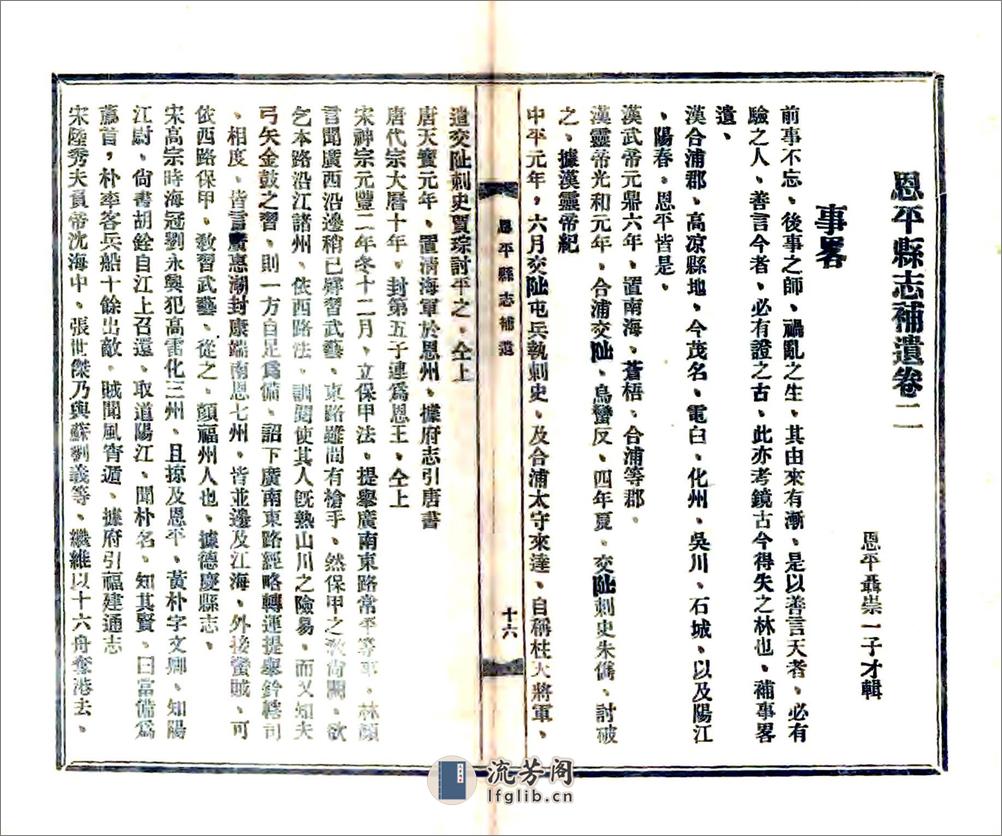 恩平縣志補遺卷二
恩平聶崇一子才輯
事畧
前事不忘、後事之師、禍亂之生、其由來有漸、是以善言天者、必有
驗之人、善言今者、必有證之古、此亦考鏡古今得失之林也、補事畧
遺、
漢合浦郡、高凉縣地、今茂名、電白、化州、吳川、石城、以及陽江
、陽春、恩平皆是、
漢武帝元鼎六年、置南海、蒼梧、合浦等郡、
漢靈帝光和元年、合浦交阯、烏蠻反、四年夏、交阯刺史朱儁、討破
之、據漢靈帝紀
中平元年、六月交阯屯兵執刺史、及合浦太守來達、自稱柱天將軍、
恩平縣志補遺
十六
遣交阯刺史賈琮討平之、仝上
唐天寶元年、置清海軍於恩州、據府志引唐書
唐代宗大曆十年、封第五子連爲恩王、仝上
宋神宗元豐二年冬十二月、立保甲法、提舉廣南東路常平等事、林顔
言聞廣西沿邊稍已肄習武藝、東路雖間有槍手、然保甲之敎尚闕、欲
乞本路沿江諸州、依西路法、訓閱使其人旣熟山川之險易、而又知夫
弓矢金鼓之習、則一方自足爲備、詔下廣南東路經略轉運提舉鈐轄司
、相度、皆言廣惠潮封康端南恩七州、皆並邊及江海、外接蠻賊、可
依西路保甲、敎習武藝、從之、顔福州人也、據德慶縣志、
宋高宗時海冦劉永興犯高雷化三州、且掠及恩平、黃朴字文卿、知陽
江尉、尙書胡銓自江上召還、取道陽江、聞朴名、知其賢、曰當備爲
薦首，朴率客兵船十餘出敵、賊聞風宵遁、據府引福建通志
宋陸秀夫負帝沈海中、張世傑乃與蘇劉義等、纖維以十六舟奪港去、
流芳阁
lfglib.cn